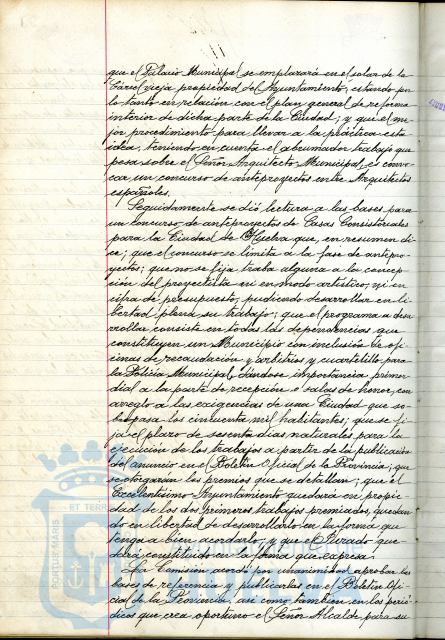 que el Palacio Municipal se emplazará en el solar de la
Cárcel vieja propiedad del Ayuntamiento, estando por
lo tanto en relación con el plan general de reforma
interior de dicha parte de la Ciudad; y que el me-
jor procedimiento para llevar a la práctica esta
idea, teniendo en cuenta el abrumador trabajo que
pesa sobre el Señor Arquitecto Municipal, es convo-
car un concurso de anteproyectos entre Arquitectos
españoles.
Seguidamente se dió lectura a las bases para
un concurso de anteproyectos de Casas Consistoriales
para la Ciudad de Huelva que, en resumen di-
ce; que el concurso se limita a la fase de antepro-
yectos; que no se fija traba alguna a la concep-
ción del proyectista ni en modo artístico, ni en
cifra de presupuesto, pudiendo desarrollar en li-
bertad plena su trabajo; que el programa a desa-
rrollar consiste en todas las dependencias que
constituyen un Municipio con inclusión de ofi-
cinas de recaudación y arbitrios y cuartelillo para
la Policía Municipal, dándose importancia primor-
dial a la parte de recepción o salas de honor, con
arreglo a las exigencias de una Ciudad que so-
brepasa los cincuenta mil habitantes; que se fi-
ja el plazo de sesenta días naturales para la
ejecución de los trabajos a partir de la publicación
del anuncio en el Boletín Oficial de la Provincia; que
se otorgarán los premios que se detallan; que el
Excelentísimo Ayuntamiento quedará en propie-
dad de los dos primeros trabajos premiados, quedan-
do en libertad de desarrollarlo en la forma que
tenga a bien acordarlo, y que el Jurado que-
dará constituido en la forma que expresa.
La Comisión acordó por unanimidad aprobar las
bases de referencia y publicarlas en el Boletín Ofi-
cial de la Provincia, así como también en los perió-
dicos que crea oportuno el Señor Alcalde para su
PORTUS MARIS
ET TERR